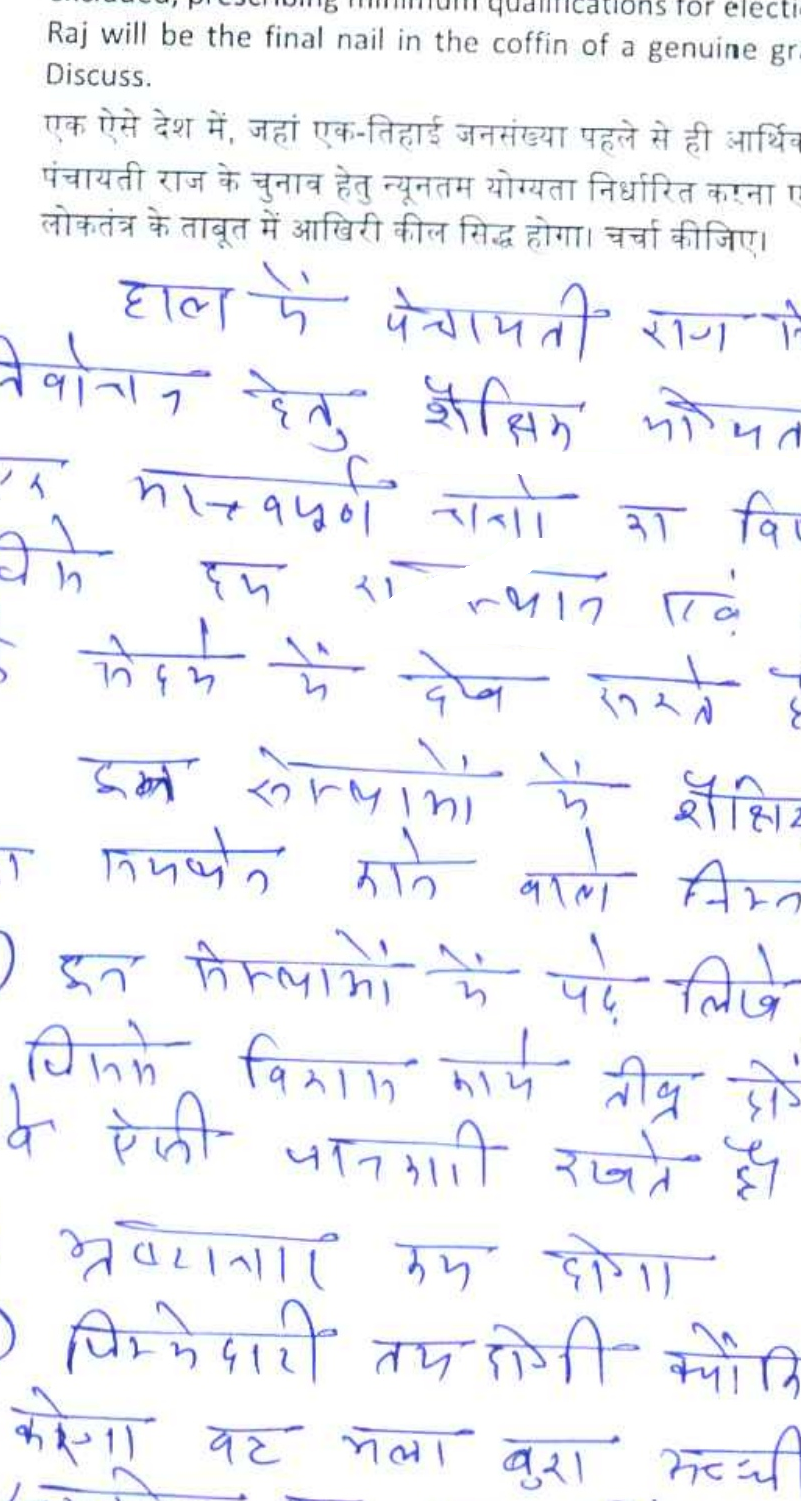 excluded, prescribing minimum qualifications for electi
Raj will be the final nail in the coffin of a genuine gr
Discuss.
एक ऐसे देश में, जहां एक-तिहाई जनसंख्या पहले से ही आर्थिक
पंचायती राज के चुनाव हेतु न्यूनतम योग्यता निर्धारित करना ए
लोकतंत्र के ताबूत में आखिरी कील सिद्ध होगा। चर्चा कीजिए।
हाल में पंचायती राज
हेतु शैक्षिक योग्यत
महत्वपूर्ण चर्चा का
हम एवं
संदर्भ में देख सकते
इन संस्थाओं में शैक्षिक
समर्थन करने वाले निम्न
इन संस्थाओं में पढ़े लिखे
जिससे विकास कार्य तीव्र होंगे
वे ऐसी जानकारी रखते हैं
भ्रष्टाचार कम होगा
जिम्मेदारी तय होगी क्योंकि
करेगा वह भला बुरा अच्छी